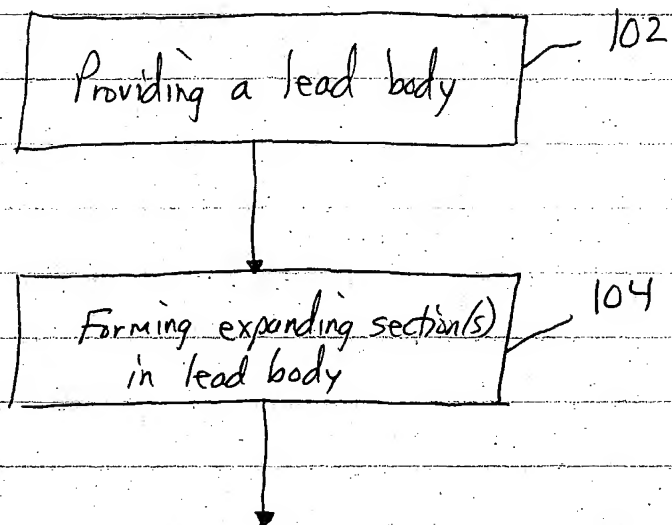 102
Providing a lead body
104
Forming expanding section(s)
in lead body